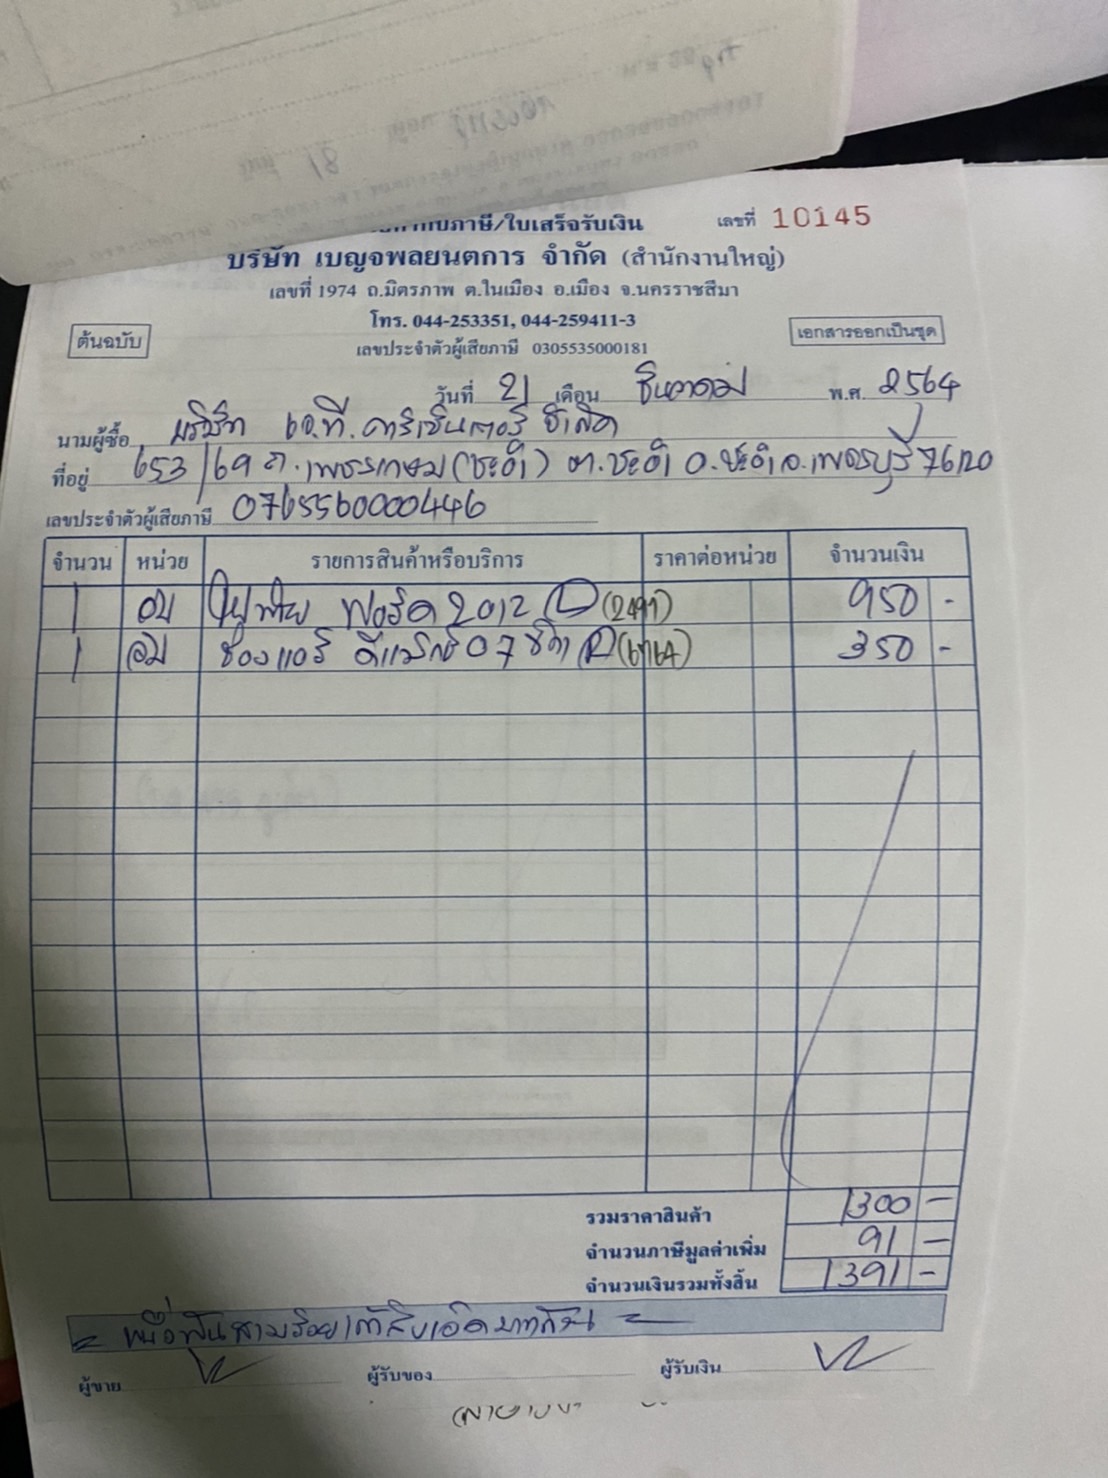 ใบกำกับภาษี/ใบเสร็จรับเงิน เลขที่ 10145
บริษัท เบญจพลยนตการ จำกัด (สำนักงานใหญ่)
เลขที่ 1974 ถ.มิตรภาพ ต.ในเมือง อ.เมือง จ.นครราชสีมา
โทร. 044-253351, 044-259411-3
ต้นฉบับ
เอกสารออกเป็นชุด
เลขประจำตัวผู้เสียภาษี 0305535000181
วันที่ 21 เดือน ธันวาคม พ.ศ. 2564
นามผู้ซื้อ บริษัท เอ.ที.คาร์เซ็นเตอร์ จำกัด
ที่อยู่ 653/69 ถ.เพชรเกษม (ชะอำ) ต.ชะอำ อ.ชะอำ จ.เพชรบุรี 76120
เลขประจำตัวผู้เสียภาษี 0765560000446
จำนวน หน่วย รายการสินค้าหรือบริการ ราคาต่อหน่วย จำนวนเงิน
1 อัน ฟอร์ด 2012 950 -
1 อัน ช่องแอร์ ดีแม็กซ์ 07 350 -
รวมราคาสินค้า 1300 -
จำนวนภาษีมูลค่าเพิ่ม 91 -
จำนวนเงินรวมทั้งสิ้น 1391 -
= หนึ่งพันสามร้อยเก้าสิบเอ็ดบาทถ้วน =
ผู้ขาย ผู้รับของ ผู้รับเงิน